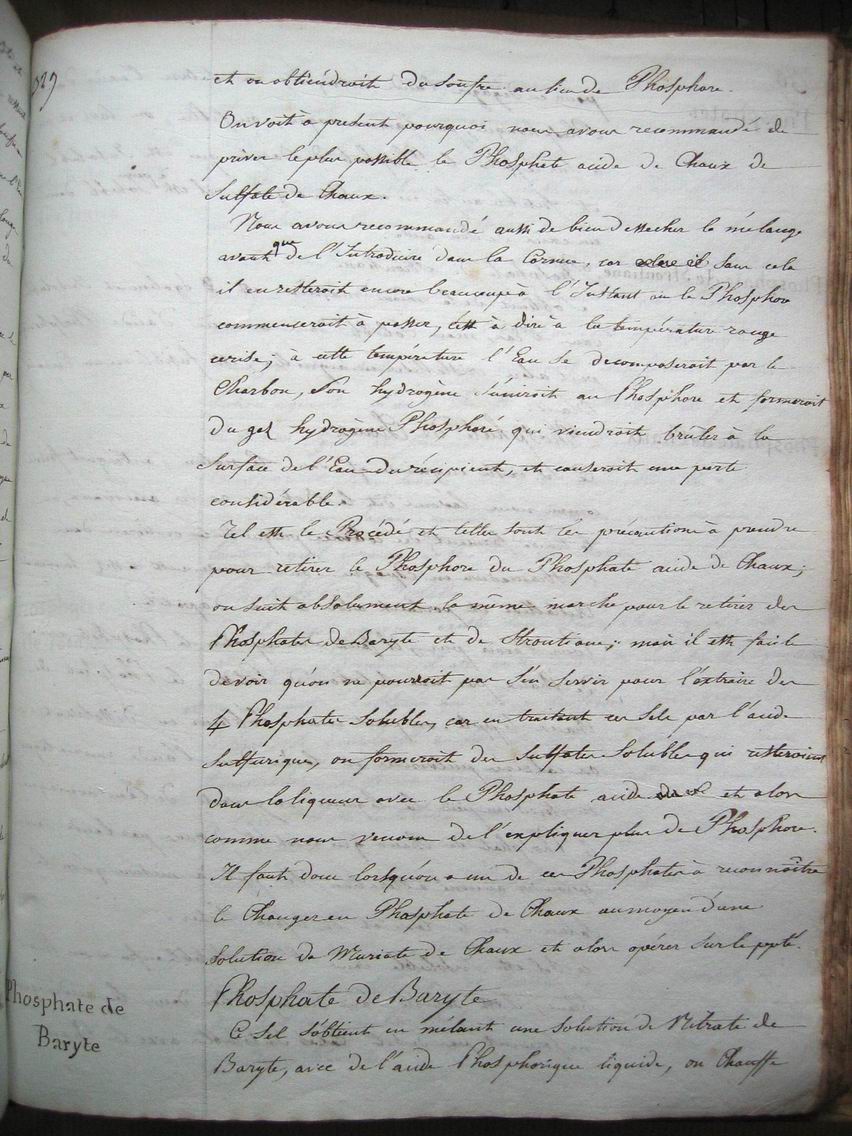 329
et on obtiendroit du soufre au lieu de Phosphore.
On voit à present pourquoi nous avons recommandé de
priver le plus possible le Phosphate acide de Chaux de
Sulfate de Chaux.
Nous avons recommandé aussi de bien dessecher le mélange
avant que de l'Introduire dans la Cornue, car sans cela
il en resteroit encore beaucoup à l'Instant ou le Phosphore
commenceroit à passer, c'est à dire à la température rouge
cerise; à cette température l'Eau se decomposeroit par le
Charbon, Son hydrogène s'uniroit au Phosphore et formeroit
du gaz hydrogène Phosphoré qui viendroit brûler à la
Surface de l'Eau du récipient, et causeroit une perte
considerable.
Tel est le Procédé et telles sont les précautions à prendre
pour retirer le Phosphore du Phosphate acide de Chaux;
on suit absolument la même marche pour le retirer des
Phosphates de Baryte et de Strontiane; mais il est facile
de voir qu'on ne pourroit pas s'en servir pour l'extraire des
4 Phosphates Solubles, car en traitant ces Sels par l'acide
Sulfurique, on formeroit des Sulfates Solubles qui resteroient
dans la liqueur avec le Phosphate acide et alors
comme nous venons de l'expliquer plus de Phosphore.
Il faut donc lorsqu'on a un de ces Phosphates à reconnoître
le Changer en Phosphate de Chaux au moyen d'une
Solution de Muriate de Chaux et alors opérer sur le ppté.
Phosphate de Baryte
Phosphate de
Baryte
Ce Sel s'obtient en mêlant une Solution de Nitrate de
Baryte, avec de l'acide Phosphorique liquide, on Chauffe